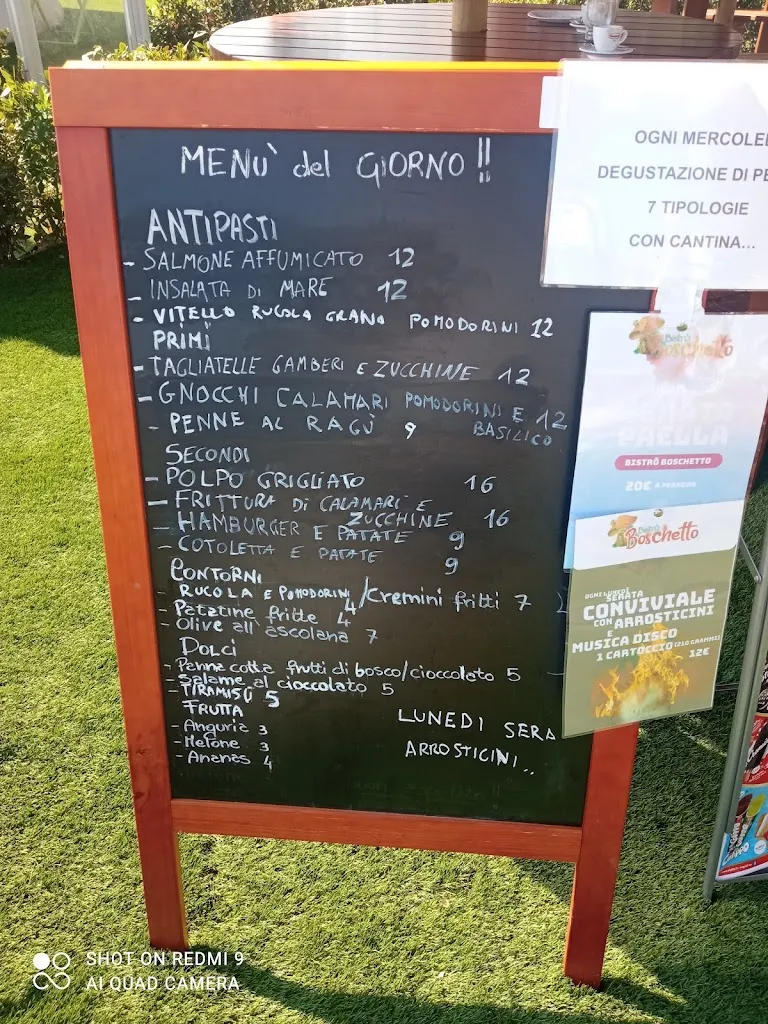 MENÙ del GIORNO !!
ANTIPASTI
- SALMONE AFFUMICATO 12
- INSALATA DI MARE 12
- VITELLO RUCOLA GRANA POMODORINI 12
PRIMI
- TAGLIATELLE GAMBERI E ZUCCHINE 12
- GNOCCHI CALAMARI POMODORINI E 12
BASILICO
- PENNE AL RAGÙ 9
SECONDI
- POLPO GRIGLIATO 16
- FRITTURA DI CALAMARI E
ZUCCHINE 16
- HAMBURGER E PATATE 9
- COTOLETTA E PATATE 9
CONTORNI
- RUCOLA E POMODORINI 4/Cremini fritti 7
- Patatine fritte 4
- Olive all'ascolana 7
DOLCI
- Panna cotta frutti di bosco/cioccolato 5
- Salame al cioccolato 5
- TIRAMISÙ 5
FRUTTA
- Anguria 3
- Melone 3
- Ananas 4
LUNEDI SERA
ARROSTICINI...
OGNI MERCOLE
DEGUSTAZIONE DI
7 TIPOLOGIE
CON CANTINA...
Bistrò
Boschetto
PAELLA
BISTRÒ BOSCHETTO
20€ A PERSONA
Bistrò
Boschetto
OGNI LUNEDÌ
SERATA
CONVIVIALE
CON ARROSTICINI
E
MUSICA DISCO
1 CARTOCCIO (210 GRAMMI)
12€
SHOT ON REDMI 9
AI QUAD CAMERA